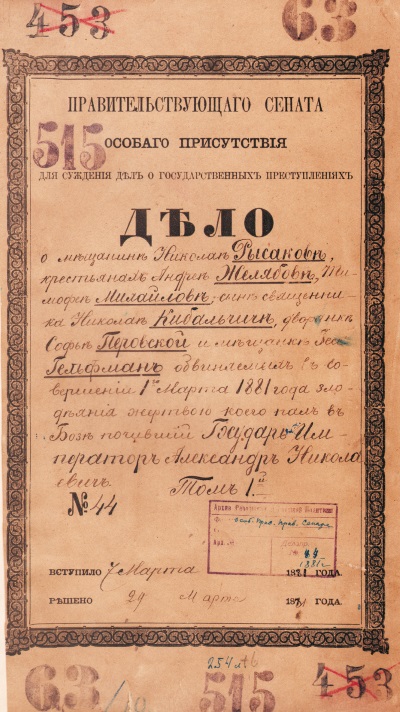 453 63
ПРАВИТЕЛЬСТВУЮЩАГО СЕНАТА
515 ОСОБАГО ПРИСУТСТВІЯ
ДЛЯ СУЖДЕНІЯ ДѢЛЪ О ГОСУДАРСТВЕННЫХЪ ПРЕСТУПЛЕНІЯХЪ
ДѢЛО
о мѣщанинѣ Николаѣ Рысаковѣ,
крестьянахъ Андреѣ Желябовѣ, Ти-
мофеѣ Михайловѣ, сынѣ священни-
ка Николаѣ Кибальчичѣ, дворянкѣ
Софьѣ Перовской и мѣщанкѣ Гесѣ
Гельфманъ обвиняемыхъ въ со-
вершеніи 1го Марта 1881 года зло-
дѣянія жертвою коего палъ въ
Бозѣ почившій Государь Им-
ператоръ Александръ Никола
евичъ. Томъ 1й
№ 44
Архив Революции
Особ. Прис. Прав. Сената
44
1881 г.
ВСТУПИЛО 7 Марта 1881 ГОДА.
РѢШЕНО 29 Марта 1881 ГОДА.
254 л
63 515 453